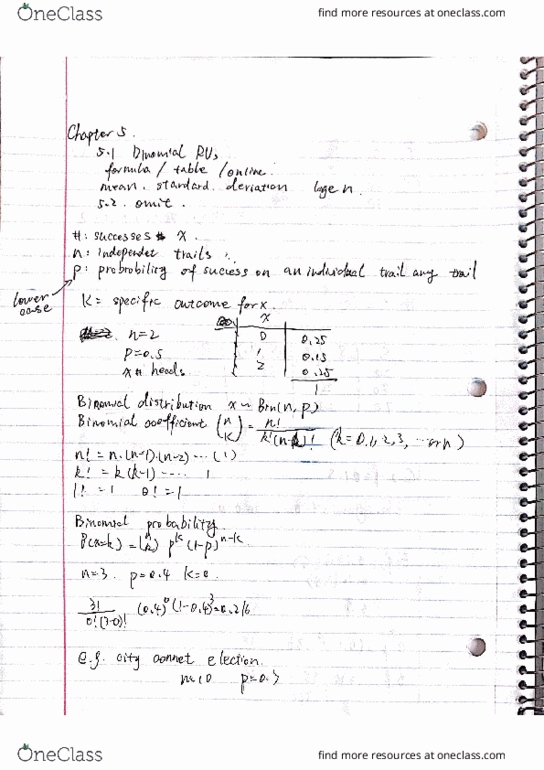 OneClass
find more resources at oneclass.com
Chapter 5.
5.1 Binomial RVs
formula / table / online.
mean. standard. deviation
5.2. omit.
#: successes # X.
n: independet trails
p: probrobility of success on an individual trail any trail
lower case
k = specific outcome for x.
X
n=2
0 0.25
p=0.5
1
x # heads.
2 0.25
1
Binomial distribution x ~ Bin(n, p)
Binomial coefficient (n k) = n! / k!(n-k)! (k=0,1,2,3, … or n)
n! = n.(n-1).(n-2) … (1)
k! = k(k-1) ….. 1
1! = 1 0! = 1
Binomial probability.
P(x=k) = (n k) p^k (1-p)^n-k
n=3. p=0.4 k=0
3! / 0!(3-0)! (0.4)^0 (1-0.4)^3=0.216
e.g. city election.
n=10
OneClass
find more resources at oneclass.com